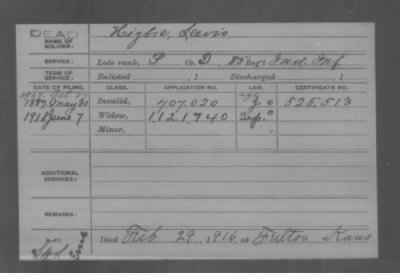 DEAD
NAME OF SOLDIER: Higbie, Lewis
SERVICE: Late rank, P Co. D, 85 Reg't Ind. Inf
TERM OF SERVICE: Enlisted , 1 Discharged , 1
DATE OF FILING. CLASS. APPLICATION NO. LAW. CERTIFICATE NO.
1889 May 31 Invalid, 707.020 525,513
1918 June 7 Widow, 1,121,740 Sep. "
Minor,
ADDITIONAL SERVICES:
REMARKS:
Died Feb 29, 1916, at Fulton Kans